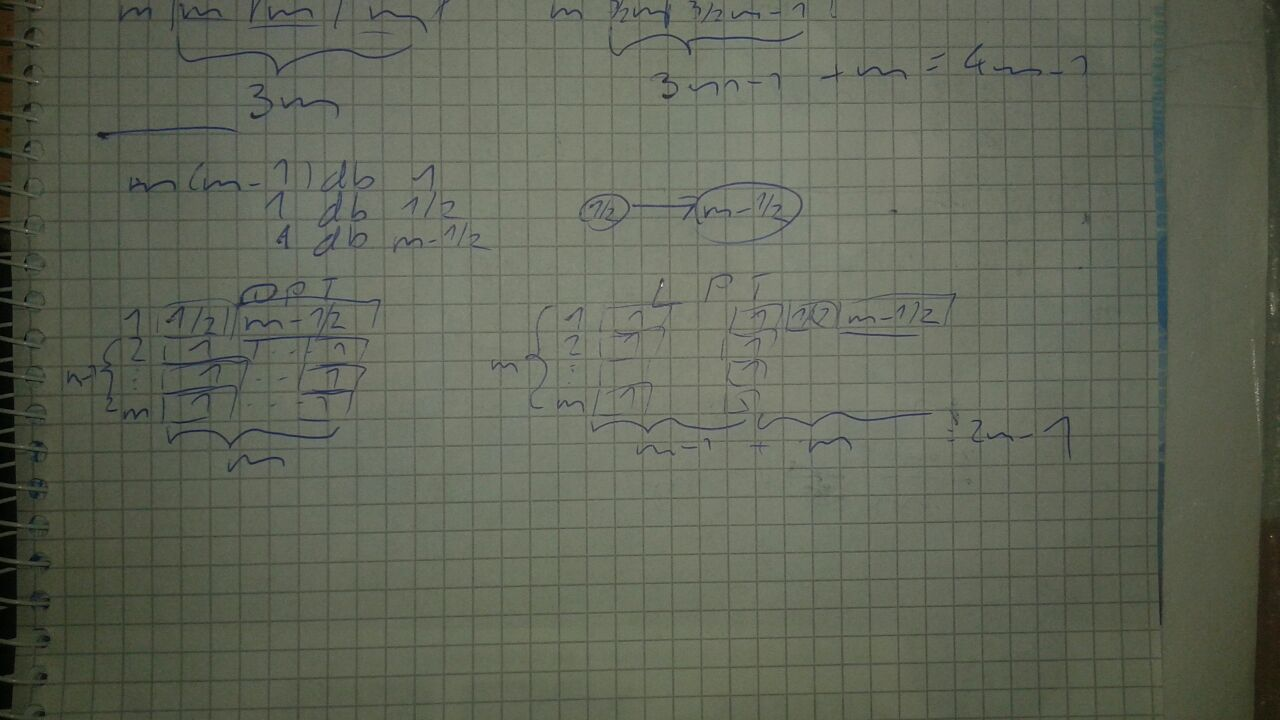 m m m m
m 3/2m 3/2m-1
3m
3m-1 + m = 4m-1
m(m-1) db 1
1 db 1/2
1 db m-1/2
1/2 → m-1/2
OPT
1 1/2 m-1/2
2 1 ... 1
: 1 ... 1
m 1 ... 1
m
LPT
1 1 1 1/2 m-1/2
m 2 1 1
: 1
m 1 1
m-1 + m = 2m-1